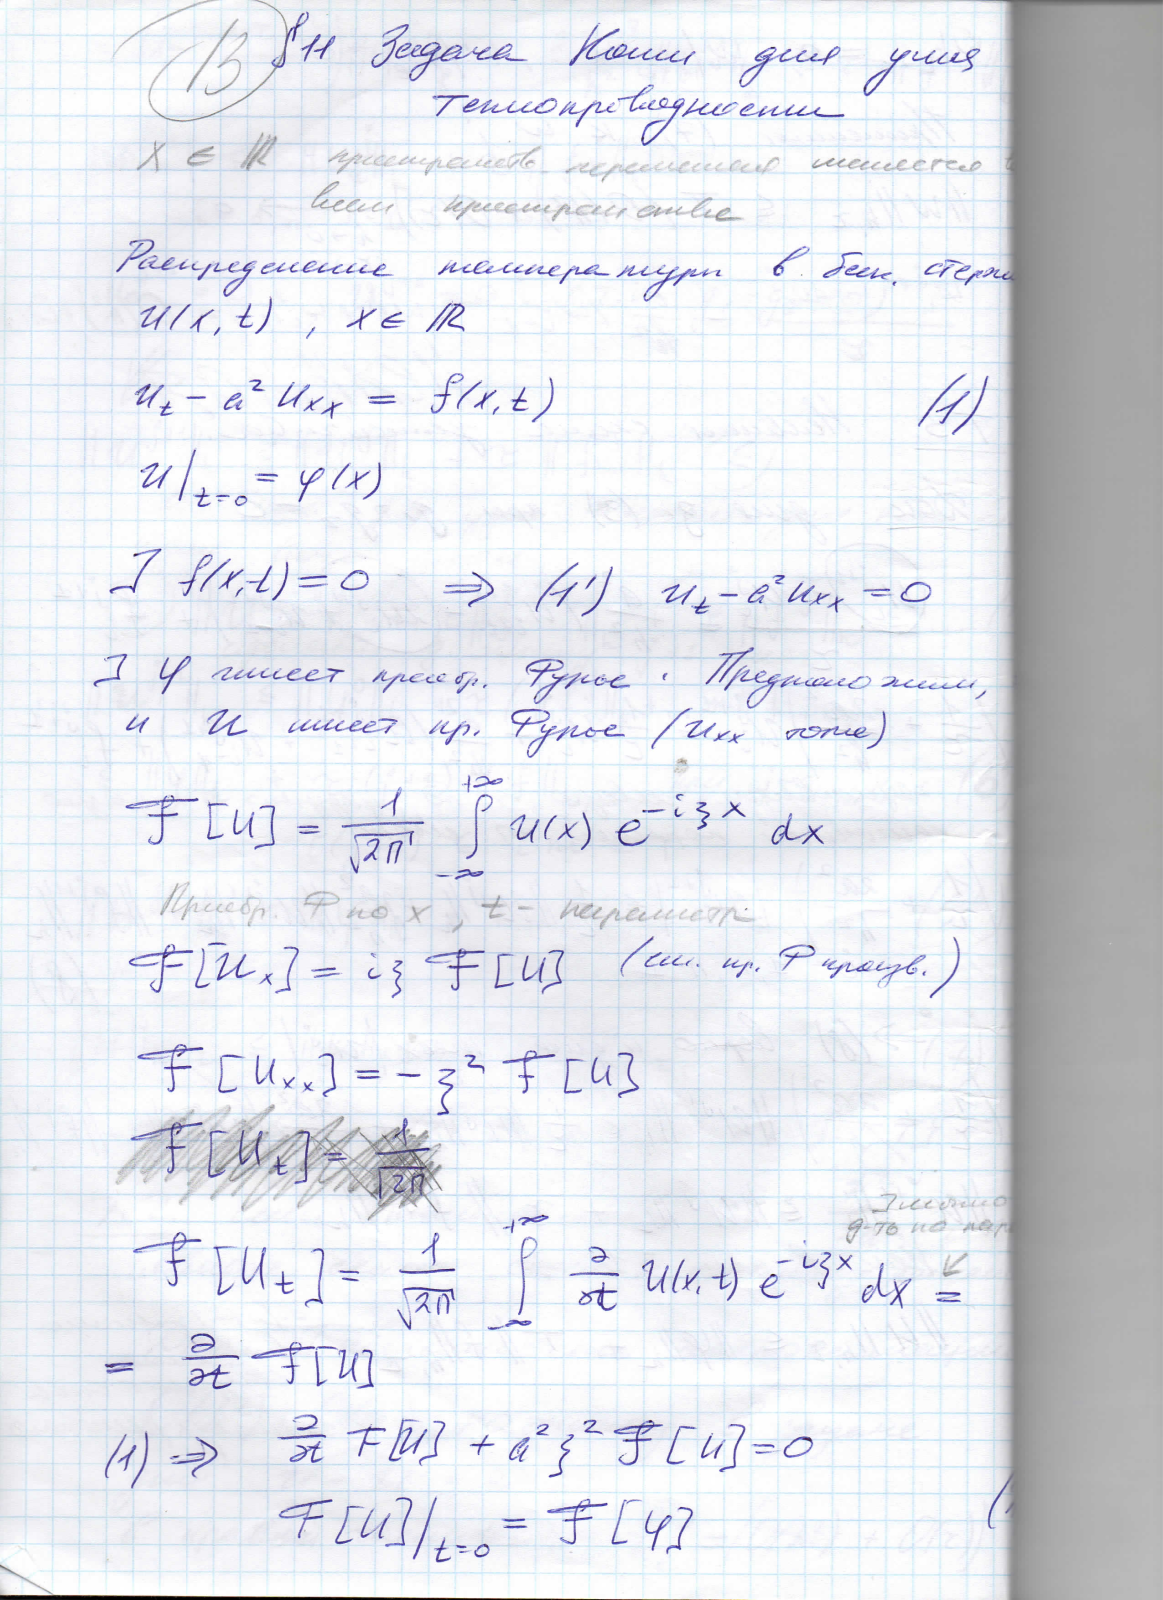 В §11 Задача Коши для ур-ия
теплопроводности
x ∈ ℝ пространств. переменная меняется в
всем пространстве
Распределение температуры в беск. стерж
u(x,t), x ∈ ℝ
u_t - a² u_xx = f(x,t) (1)
u|_{t=0} = φ(x)
] f(x,t) = 0 ⇒ (1') u_t - a² u_xx = 0
] φ имеет преобр. Фурье. Предположим,
и u имеет пр. Фурье (u_xx тоже)
F[u] = 1/√2π ∫_{-∞}^{+∞} u(x) e^{-iξx} dx
Преобр. Ф по x, t - параметр
F[u_x] = iξ F[u] (см. пр. Ф произв.)
F[u_xx] = -ξ² F[u]
F[u_t] = 1/√2π
д-ть по пар
F[u_t] = 1/√2π ∫_{-∞}^{+∞} ∂/∂t u(x,t) e^{-iξx} dx =
= ∂/∂t F[u]
(1) ⇒ ∂/∂t F[u] + a² ξ² F[u] = 0
F[u]|_{t=0} = F[φ]